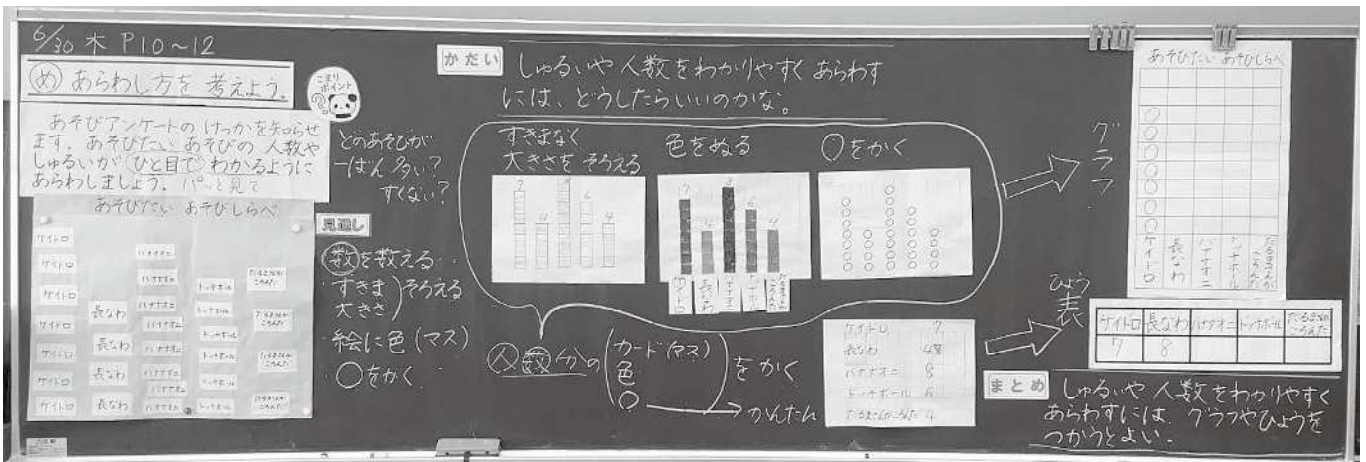 6/30 木 P10〜12
め あらわし方を 考えよう。
こまり
ポイント
?
あそびアンケートの けっかを知らせ
ます。あそびたい あそびの 人数や
しゅるいが ひと目で わかるように
あらわしましょう。パッと見て
どのあそびが
一ばん 多い?
すくない?
あそびたい あそびしらべ
ケイドロ
ケイドロ
ケイドロ
ケイドロ
ケイドロ
ケイドロ
ケイドロ
長なわ
長なわ
長なわ
長なわ
バナナオニ
バナナオニ
バナナオニ
バナナオニ
バナナオニ
バナナオニ
バナナオニ
バナナオニ
ドッヂボール
ドッヂボール
ドッヂボール
ドッヂボール
ドッヂボール
ドッヂボール
だるまさんが
ころんだ
だるまさんが
ころんだ
だるまさんが
ころんだ
だるまさんが
ころんだ
見通し
数を数える
すきま
大きさ
そろえる
・絵に色(マス)
・○をかく
かだい
しゅるいや 人数を わかりやすく あらわす
には、どうしたらいいのかな。
すきまなく
大きさを そろえる
7 4 8 6 4
色をぬる
7 4 8 6 4
ケイドロ
長なわ
バナナオニ
ドッヂボール
だるまさんがころんだ
○をかく
人数分の
カード(マス)
色
○
をかく
→かんたん
ケイドロ 7
長なわ 4
バナナオニ 8
ドッヂボール 6
だるまさんがころんだ 4
グラフ
あそびたい あそびしらべ
ケイドロ
長なわ
バナナオニ
ドッヂボール
だるまさんが
ころんだ
ひょう
表
ケイドロ 長なわ バナナオニ ドッヂボール だるまさんがころんだ
7 8
まとめ
しゅるいや 人数を わかりやすく
あらわすには、グラフやひょうを
つかうとよい。